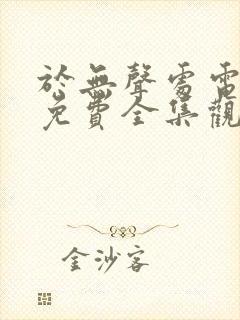 於無聲處電
免費全集觀
金沙客